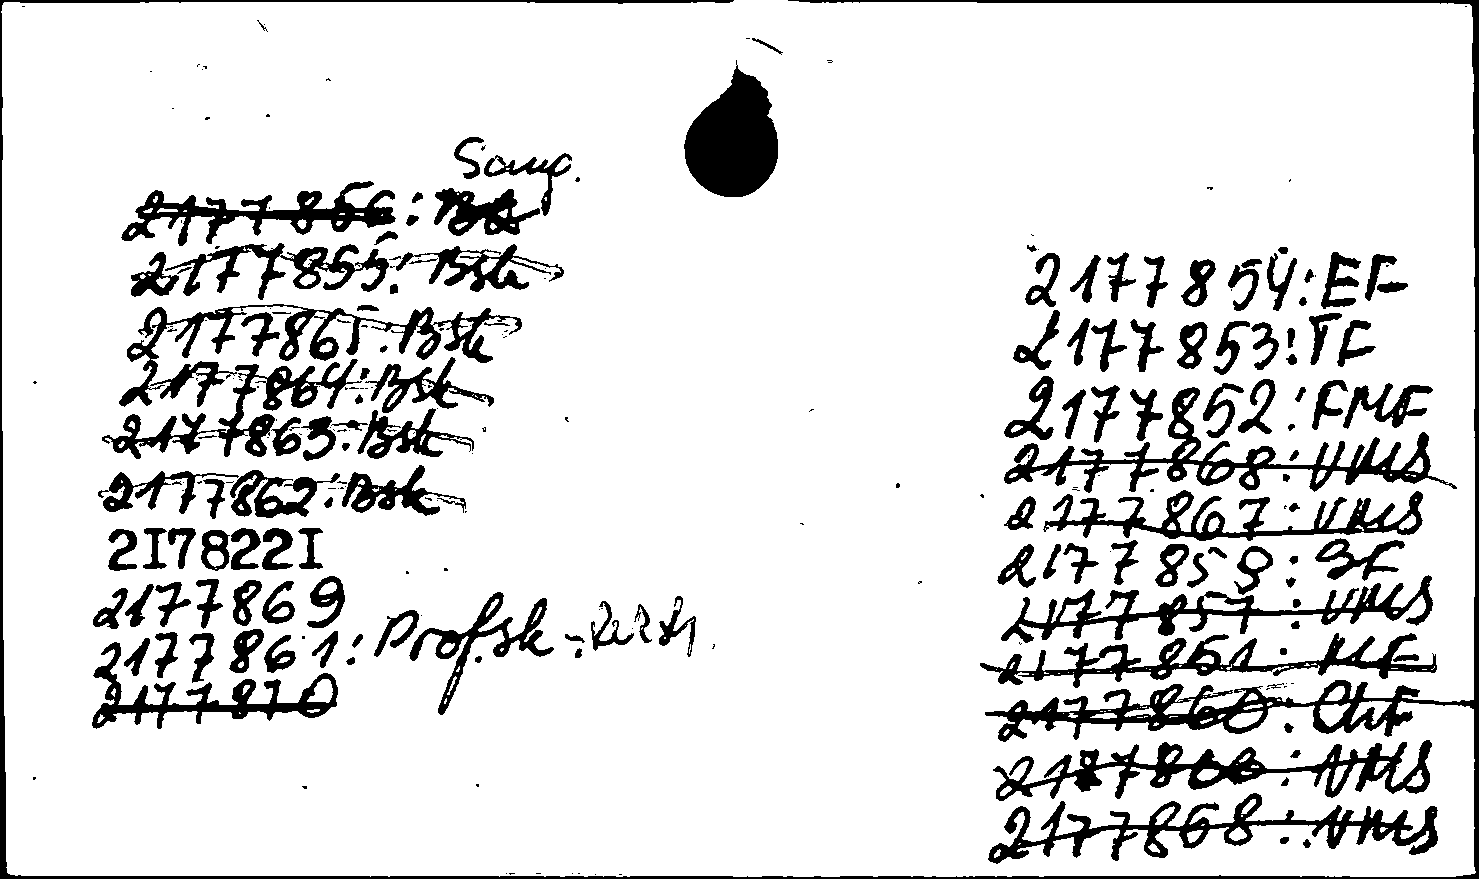 Samg.
2177856: BS
2177855: Bsk
2177865: Bsk
2177864: Bsk
2177863: Bsk
2177862: Bsk
2I7822I
2177869
2177861: Prof.sk -
2177870
2177854: EF
2177853: TF
2177852: FMF
2177868: VMS
2177867: VMS
2177859: SF
2177857: VMS
2177851: MF
2177860: ChF
2177866: VMS
2177868: VMS